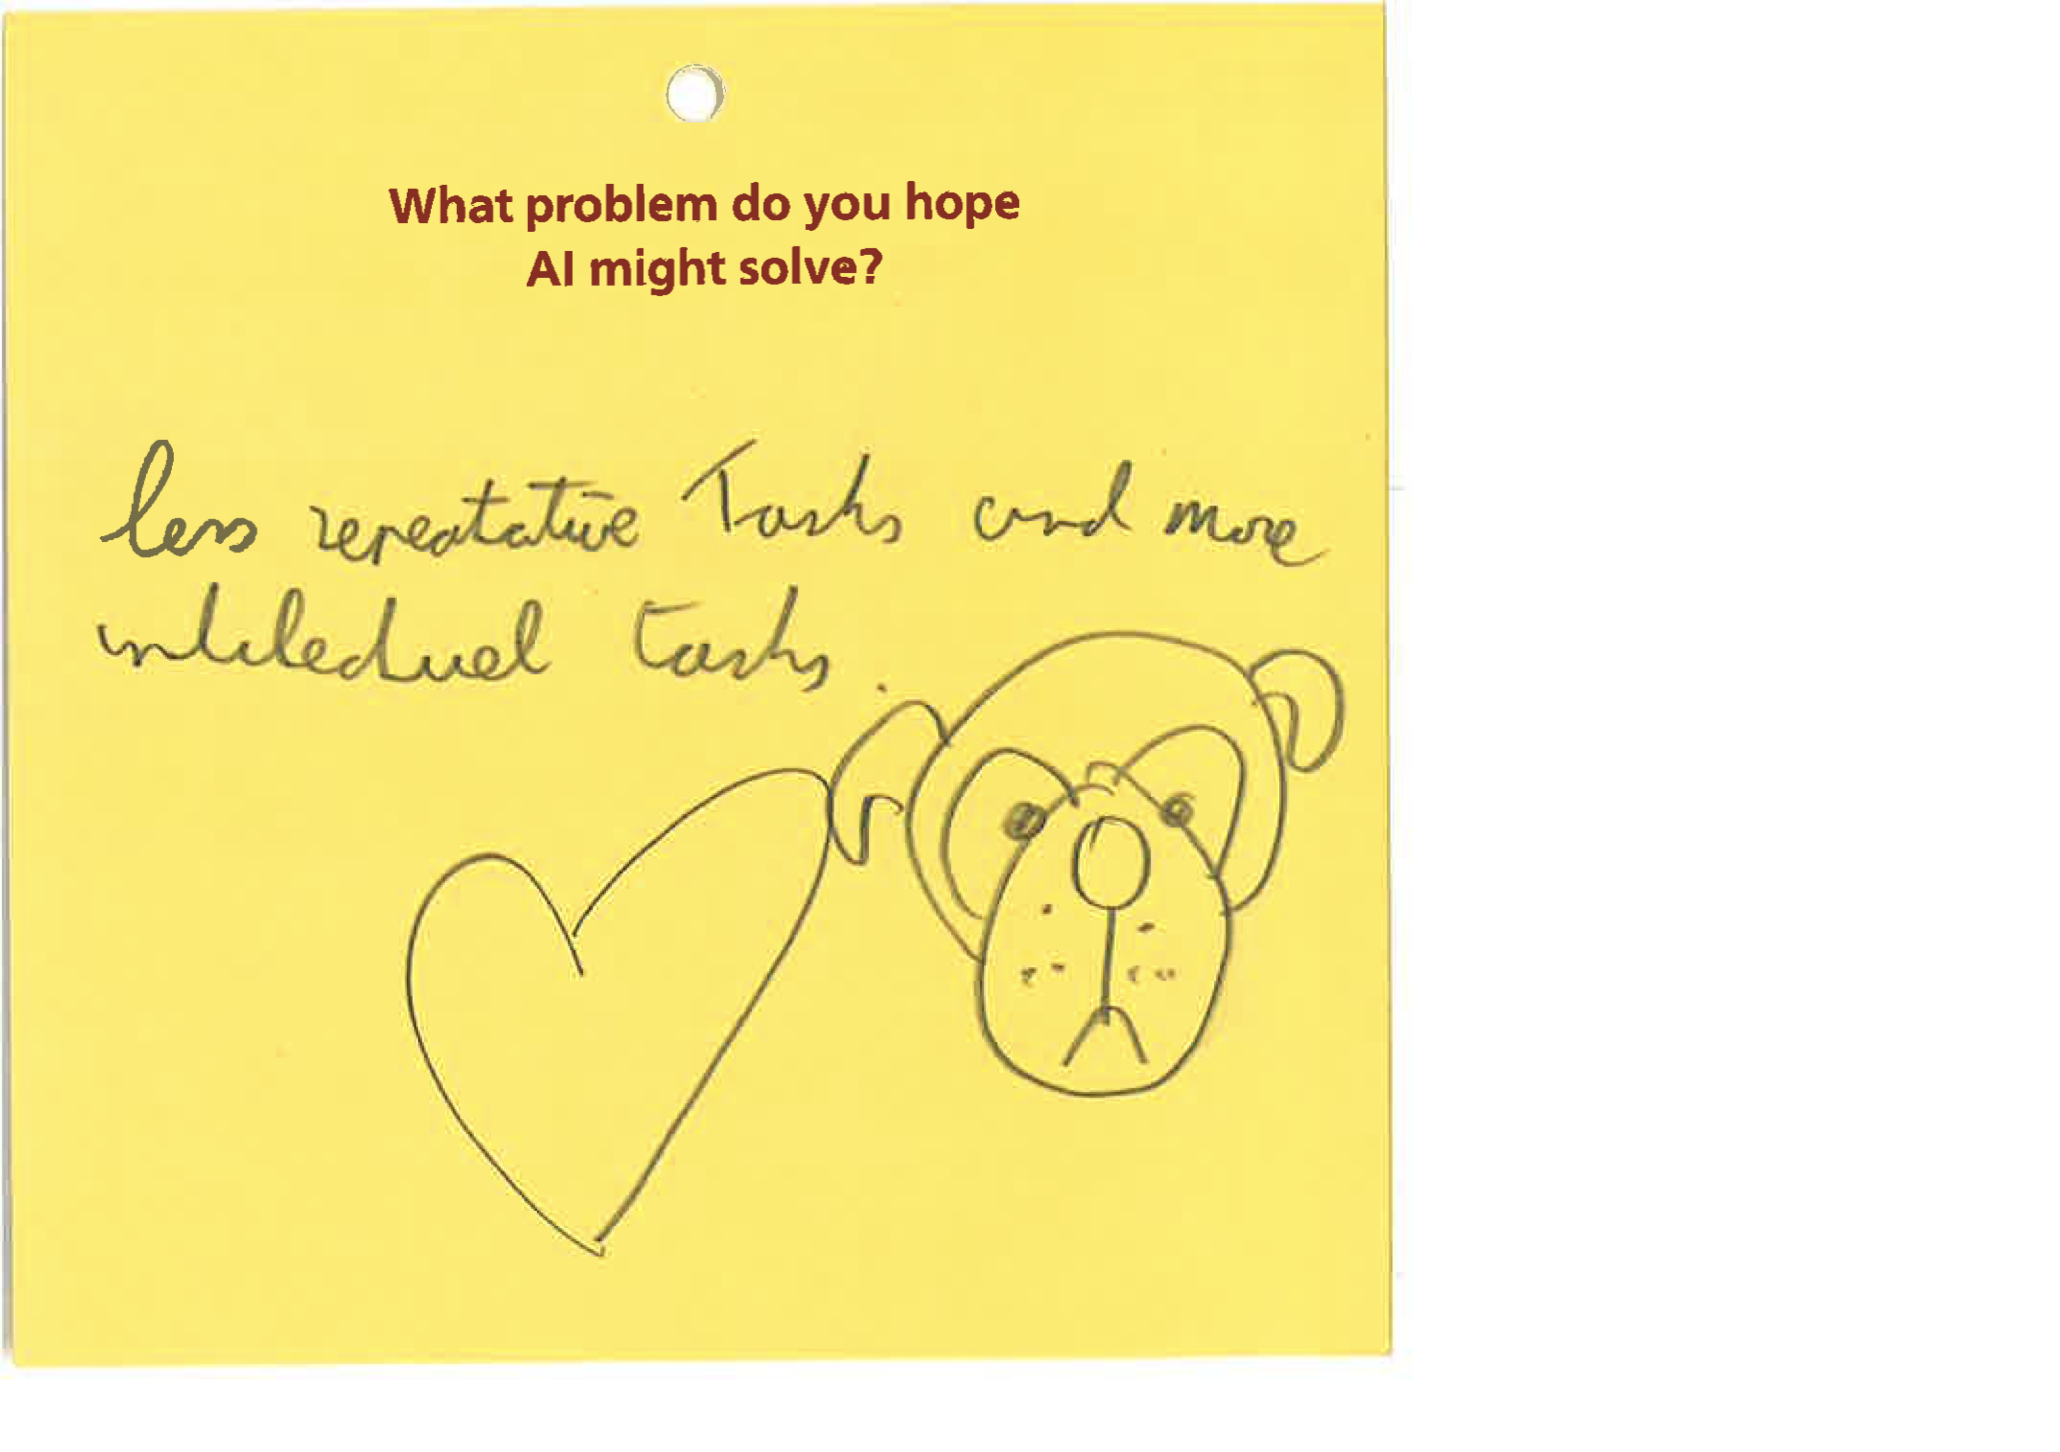 What problem do you hope
AI might solve?
less repeatative Tasks and more
intelectuel tasks.